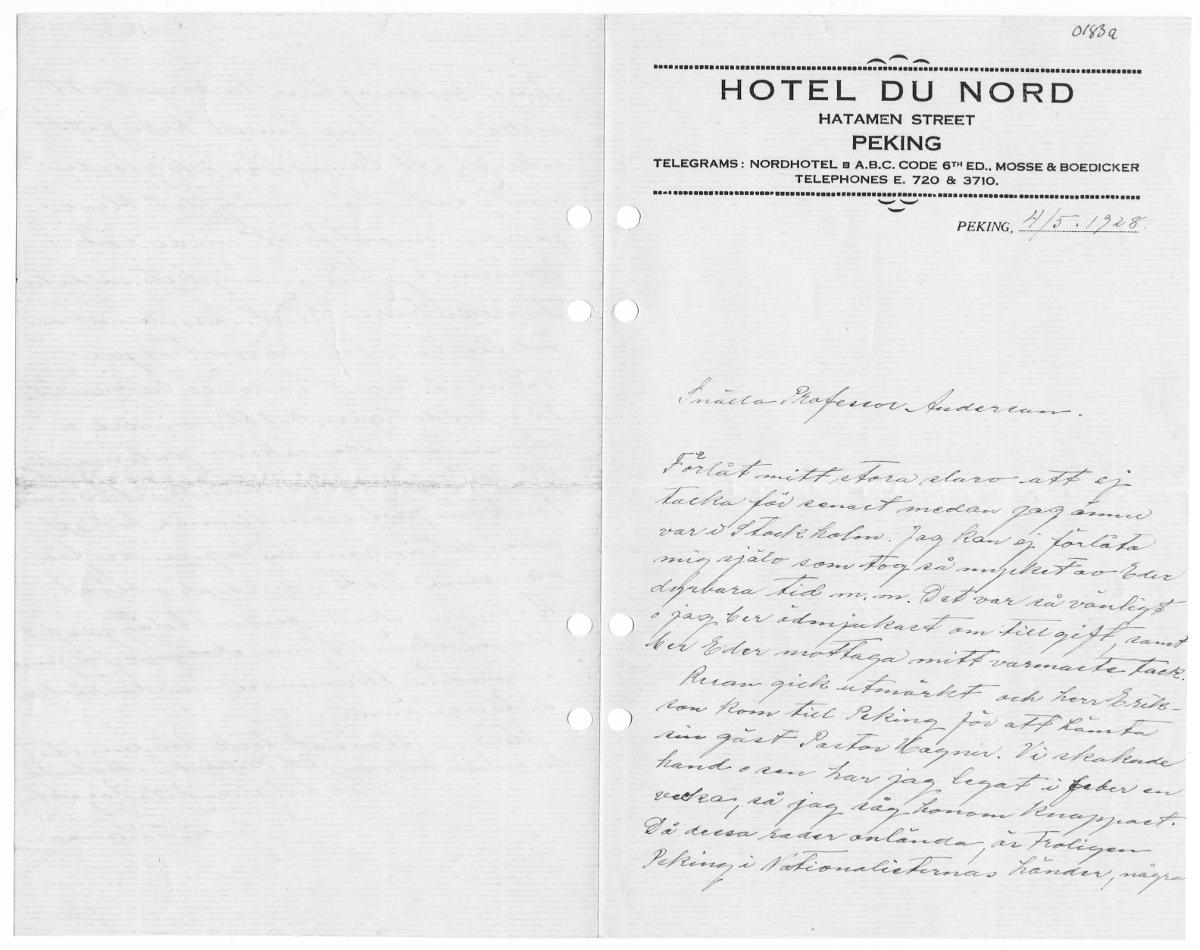 0183a
HOTEL DU NORD
HATAMEN STREET
PEKING
TELEGRAMS: NORDHOTEL A.B.C. CODE 6TH ED., MOSSE & BOEDICKER
TELEPHONES E. 720 & 3710.
PEKING, 4/5. 1928.
Snälla Professor Anderson.
Förlåt mitt stora slarv att ej
tacka för senast medan jag ännu
var i Stockholm. Jag kan ej förlåta
mig själv som tog så mycket av Eder
dyrbara tid m.m. Det var så vänligt
o jag ber ödmjukast om tillgift, samt
ber Eder mottaga mitt varmaste tack.
Resan gick utmärkt och herr Erik-
son kom till Peking för att hämta
sin gäst Pastor Hagner. Vi skakade
hand o sen har jag legat i feber en
vecka, så jag såg honom knappast.
Då dessa rader anlända, är troligen
Peking i Nationalisternas händer, några